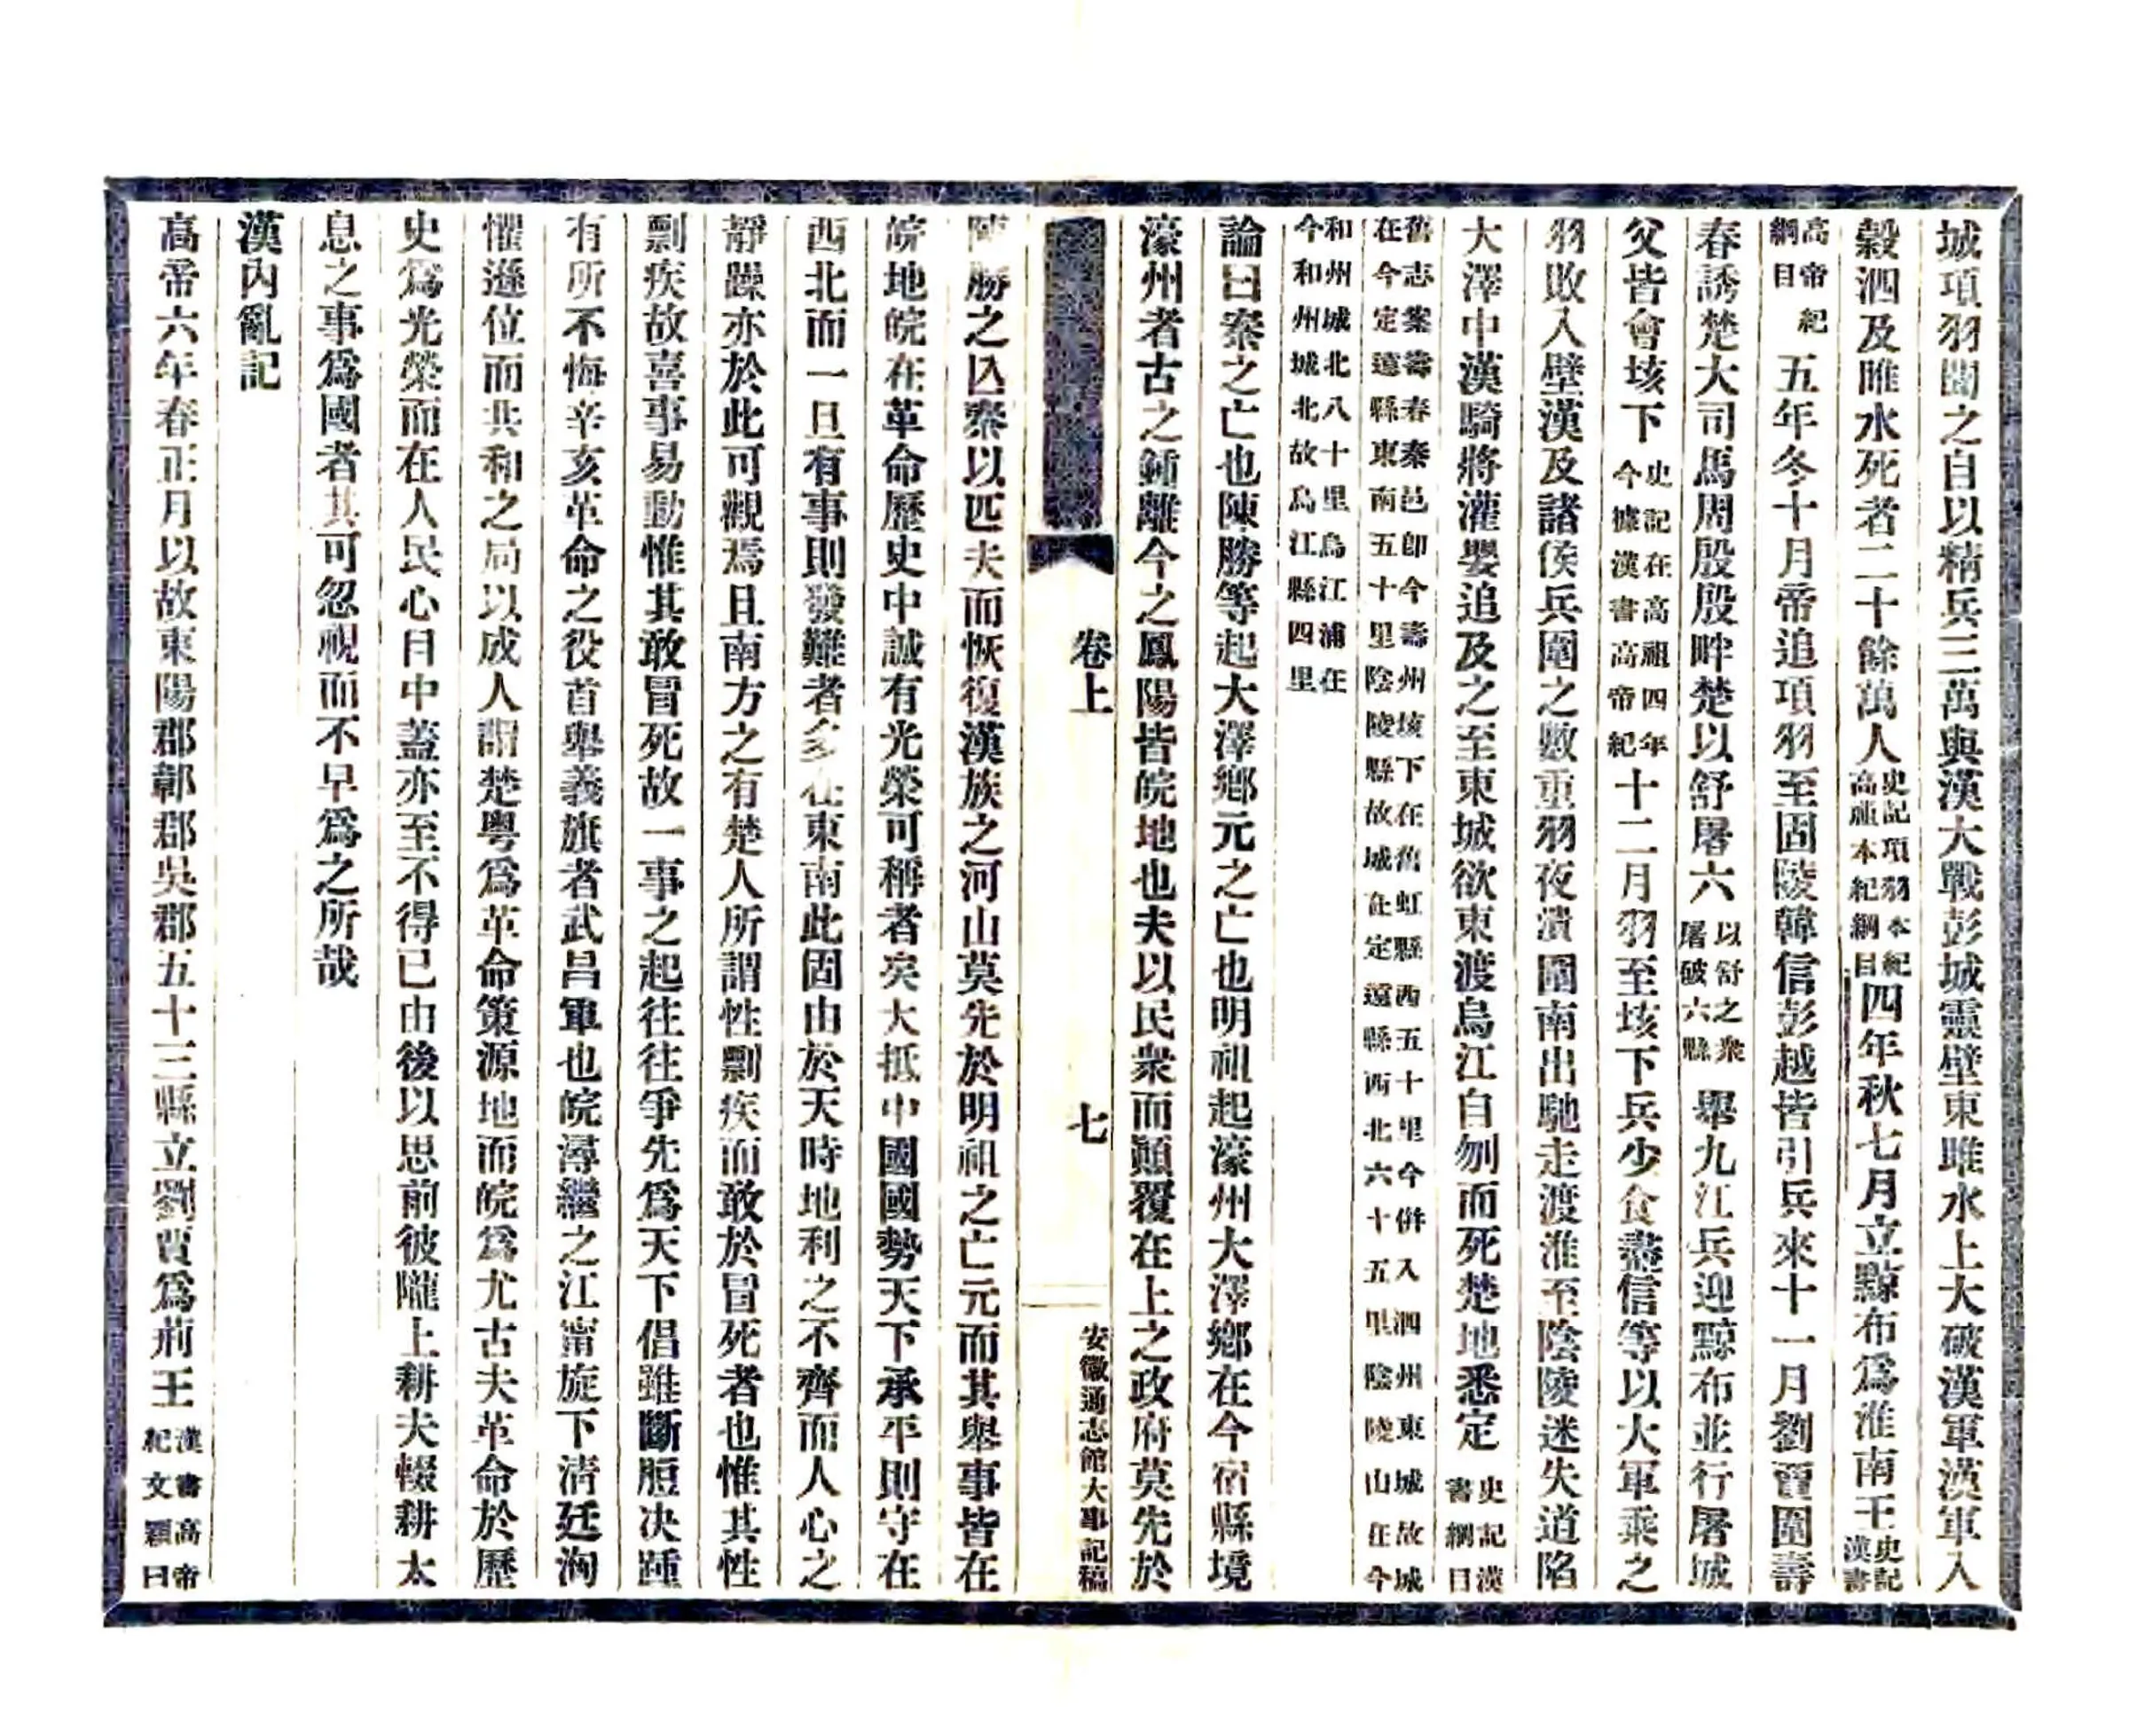 城項羽聞之自以精兵三萬與漢大戰彭城靈壁東睢水上大破漢軍漢軍入
穀泗及睢水死者二十餘萬人史記項羽本紀高祖本紀綱目四年秋七月立黥布爲淮南王史記漢書
高帝紀綱目五年冬十月帝追項羽至固陵韓信彭越皆引兵來十一月劉賈圍壽
春誘楚大司馬周殷殷畔楚以舒屠六以舒之衆屠破六縣舉九江兵迎黥布並行屠城
父皆會垓下史記在高祖四年今據漢書高帝紀十二月羽至垓下兵少食盡信等以大軍乘之
羽敗入壁漢及諸侯兵圍之數重羽夜潰圍南出馳走渡淮至陰陵迷失道陷
大澤中漢騎將灌嬰追及之至東城欲東渡烏江自刎而死楚地悉定史記漢書綱目
舊志案壽春秦邑卽今壽州垓下在舊虹縣西五十里今併入泗州東城故城
在今定遠縣東南五十里陰陵縣故城在定遠縣西北六十五里陰陵山在今
和州城北八十里烏江浦在
今和州城北故烏江縣四里
論曰秦之亡也陳勝等起大澤鄉元之亡也明祖起濠州大澤鄉在今宿縣境
濠州者古之鍾離今之鳳陽皆皖地也夫以民衆而顚覆在上之政府莫先於
卷上
七
安徽通志館大事記稿
陳勝之亾秦以匹夫而恢復漢族之河山莫先於明祖之亡元而其舉事皆在
皖地皖在革命歷史中誠有光榮可稱者矣大抵中國國勢天下承平則守在
西北而一旦有事則發難者多在東南此固由於天時地利之不齊而人心之
靜躁亦於此可觀焉且南方之有楚人所謂性剽疾而敢於冒死者也惟其性
剽疾故喜事易動惟其敢冒死故一事之起往往爭先爲天下倡雖斷脰决踵
有所不悔辛亥革命之役首舉義旗者武昌軍也皖潯繼之江甯旋下淸廷洶
懼遜位而共和之局以成人謂楚粤爲革命策源地而皖爲尤古夫革命於歷
史爲光榮而在人民心目中蓋亦至不得已由後以思前彼隴上耕夫輟耕太
息之事爲國者其可忽視而不早爲之所哉
漢內亂記
高帝六年春正月以故東陽郡鄣郡吳郡五十三縣立劉賈爲荊王漢書高帝紀文穎曰